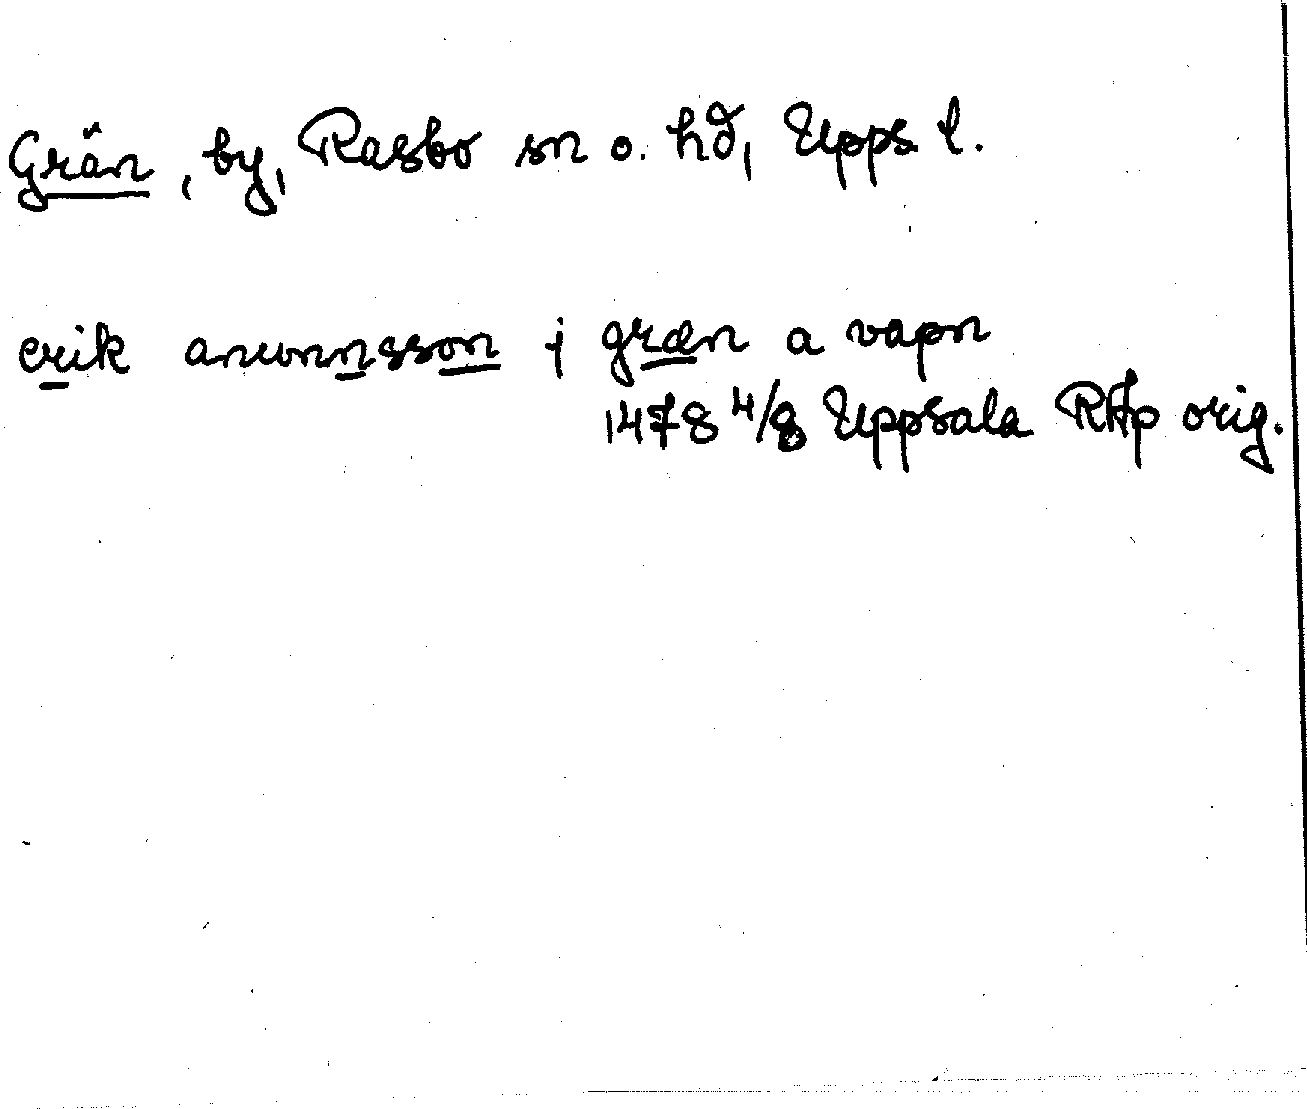 Grän, by, Rasbo sn o. hd, Upps. l.
erik anunnsson j græn a vapn
1478 4/8 Uppsala RAp orig.